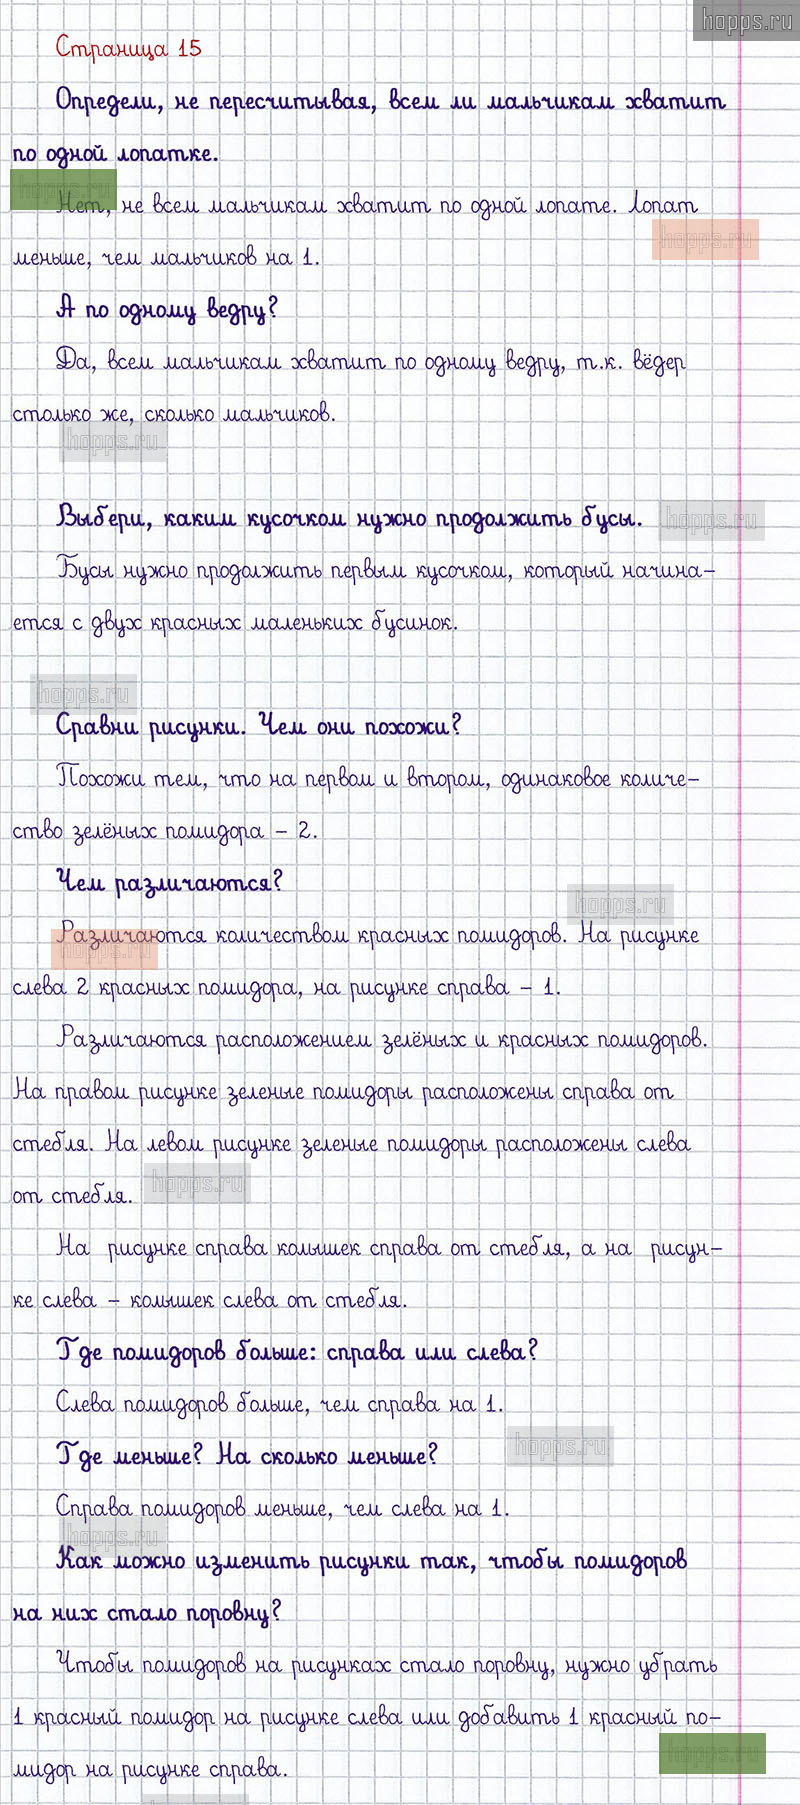 hopps.ru
Страница 15
Определи, не пересчитывая, всем ли мальчикам хватит
по одной лопатке.
hopps.ru
Нет, не всем мальчикам хватит по одной лопате. Лопат
hopps.ru
меньше, чем мальчиков на 1.
А по одному ведру?
Да, всем мальчикам хватит по одному ведру, т.к. вёдер
столько же, сколько мальчиков.
hopps.ru
Выбери, каким кусочком нужно продолжить бусы.
hopps.ru
Бусы нужно продолжить первым кусочком, который начина-
ется с двух красных маленьких бусинок.
hopps.ru
Сравни рисунки. Чем они похожи?
Похожи тем, что на первом и втором, одинаковое количе-
ство зелёных помидора - 2.
Чем различаются?
hopps.ru
Различаются количеством красных помидоров. На рисунке
hopps.ru
слева 2 красных помидора, на рисунке справа - 1.
Различаются расположением зелёных и красных помидоров.
На правом рисунке зеленые помидоры расположены справа от
стебля. На левом рисунке зеленые помидоры расположены слева
от стебля.
hopps.ru
На рисунке справа колышек справа от стебля, а на рисун-
ке слева - колышек слева от стебля.
Где помидоров больше: справа или слева?
Слева помидоров больше, чем справа на 1.
Где меньше? На сколько меньше?
hopps.ru
Справа помидоров меньше, чем слева на 1.
hopps.ru
Как можно изменить рисунки так, чтобы помидоров
на них стало поровну?
Чтобы помидоров на рисунках стало поровну, нужно убрать
1 красный помидор на рисунке слева или добавить 1 красный по-
hopps.ru
мидор на рисунке справа.